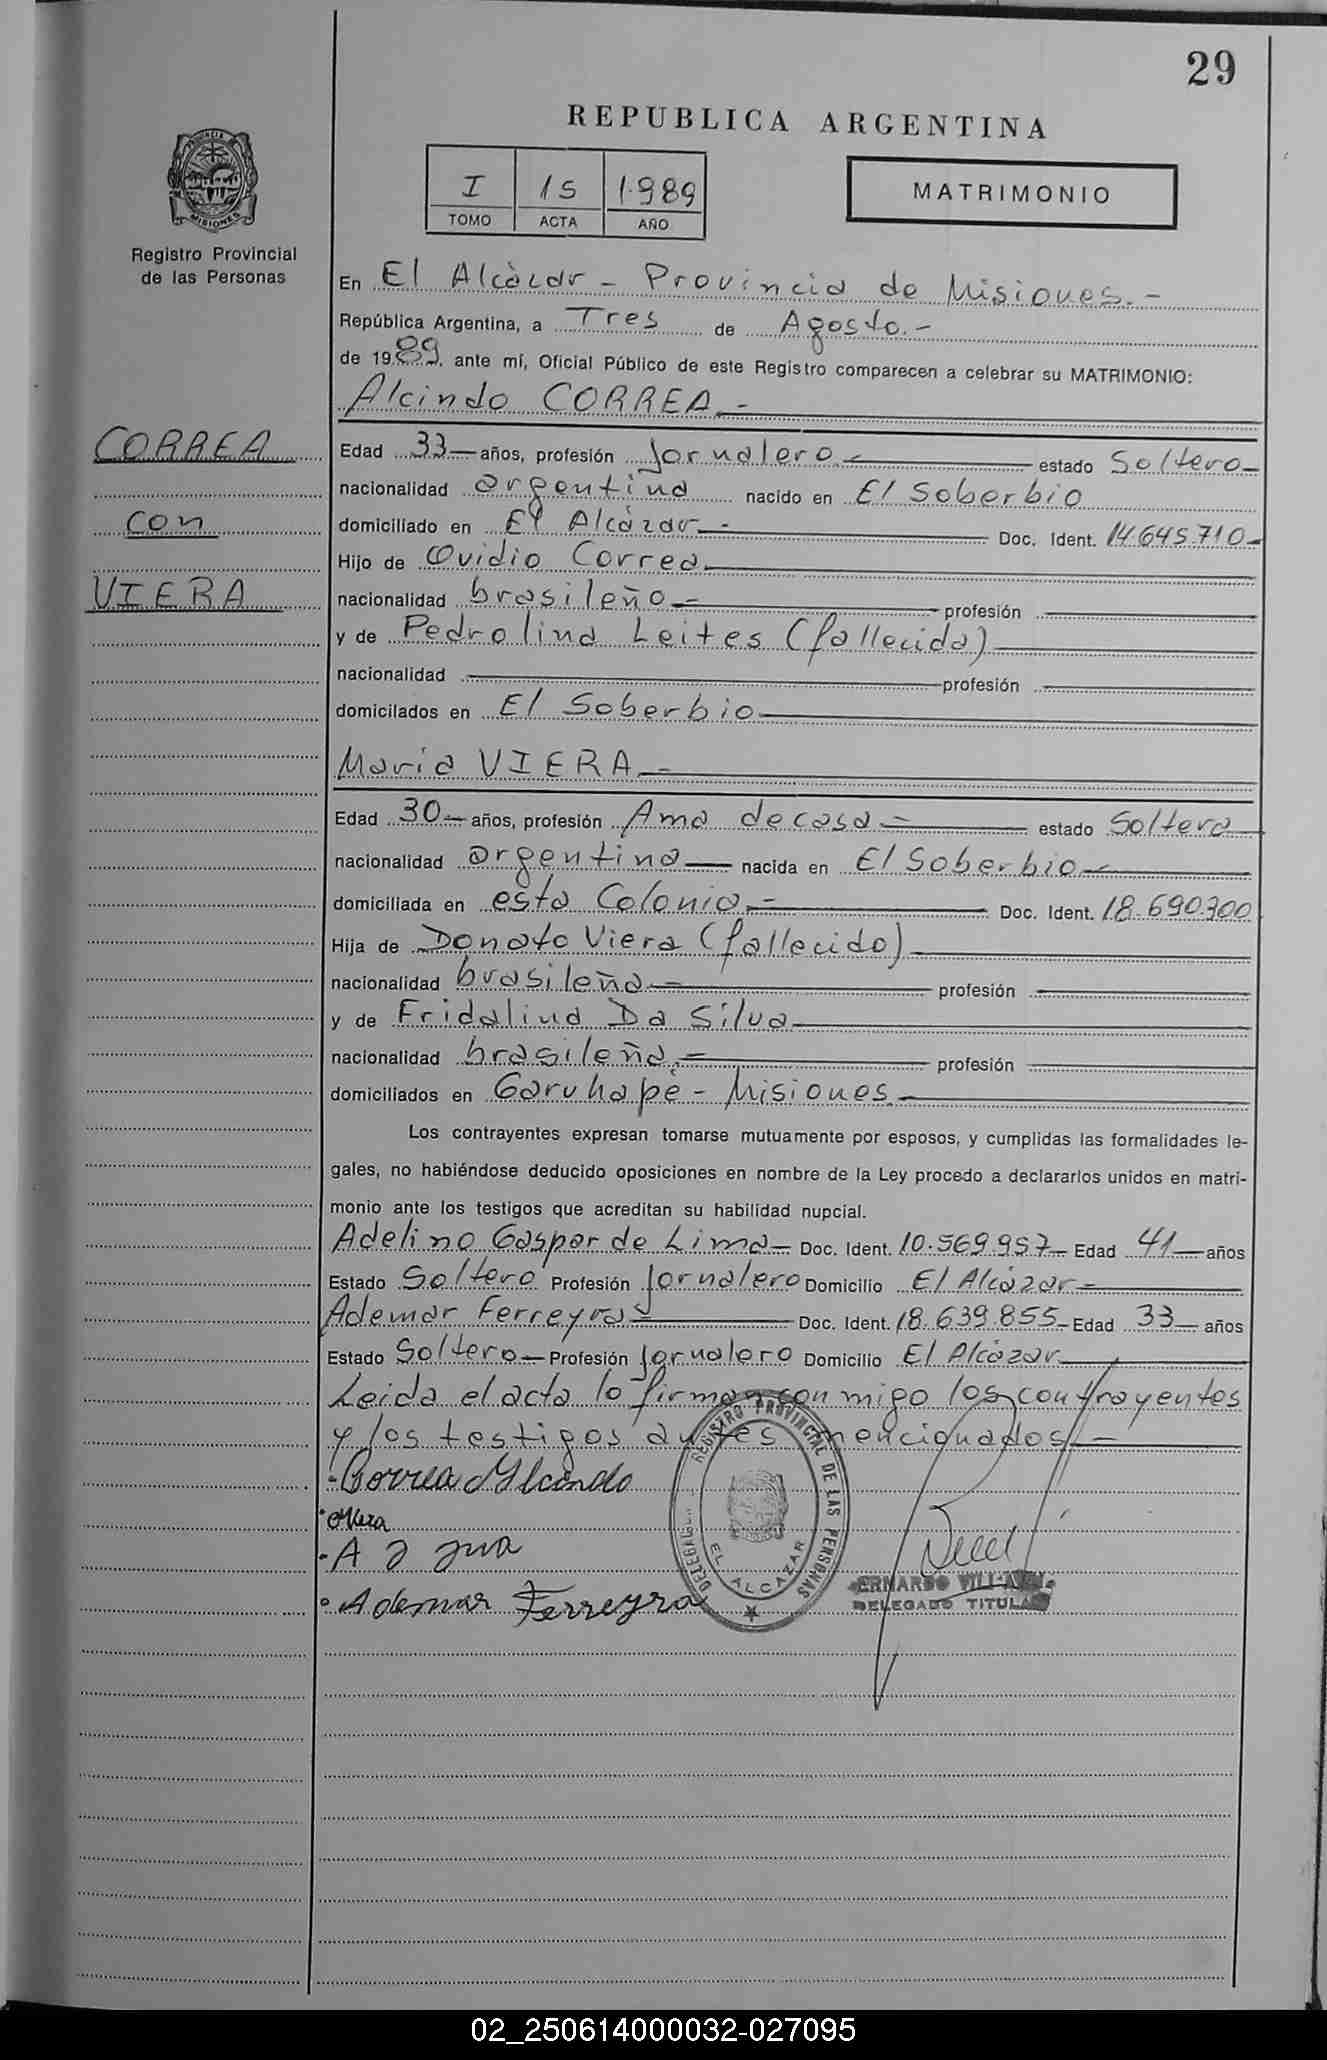 29
REPUBLICA ARGENTINA
I 15 1.989
TOMO ACTA AÑO
MATRIMONIO
PROVINCIA DE MISIONES
Registro Provincial
de las Personas
En El Alcàzar - Provincia de Misiones.-
República Argentina, a Tres de Agosto.-
de 1989. ante mí, Oficial Público de este Registro comparecen a celebrar su MATRIMONIO:
Alcindo CORREA.-
CORREA
con
VIERA
Edad 33 años, profesión Jornalero.- estado Soltero
nacionalidad argentina nacido en El Soberbio
domiciliado en El Alcázar.- Doc. Ident. 14.645.710-
Hijo de Ovidio Correa
nacionalidad brasileño.- profesión
y de Pedrolina Leites (fallecida)
nacionalidad profesión
domicilados en El Soberbio
Maria VIERA.-
Edad 30 años, profesión Ama de casa.- estado Soltera
nacionalidad argentina nacida en El Soberbio
domiciliada en esta Colonia.- Doc. Ident. 18.690.300
Hija de Donato Viera (fallecido)
nacionalidad brasileña.- profesión
y de Fridalina Da Silva
nacionalidad brasileña.- profesión
domiciliados en Garuhapé - Misiones.
Los contrayentes expresan tomarse mutuamente por esposos, y cumplidas las formalidades le-
gales, no habiéndose deducido oposiciones en nombre de la Ley procedo a declararlos unidos en matri-
monio ante los testigos que acreditan su habilidad nupcial.
Adelino Gaspar de Lima- Doc. Ident. 10.569.957- Edad 41 años
Estado Soltero Profesión Jornalero Domicilio El Alcázar-
Ademar Ferreyra Doc. Ident. 18.639.855- Edad 33 años
Estado Soltero Profesión Jornalero Domicilio El Alcázar
Leida el acta lo firman con migo los contrayentes
y los testigos antes mencionados.-
Correa Alcindo
Ademar Ferreyra
REGISTRO PROVINCIAL DE LAS PERSONAS
EL ALCAZAR
DELEGADO TITULAR
02_250614000032-027095